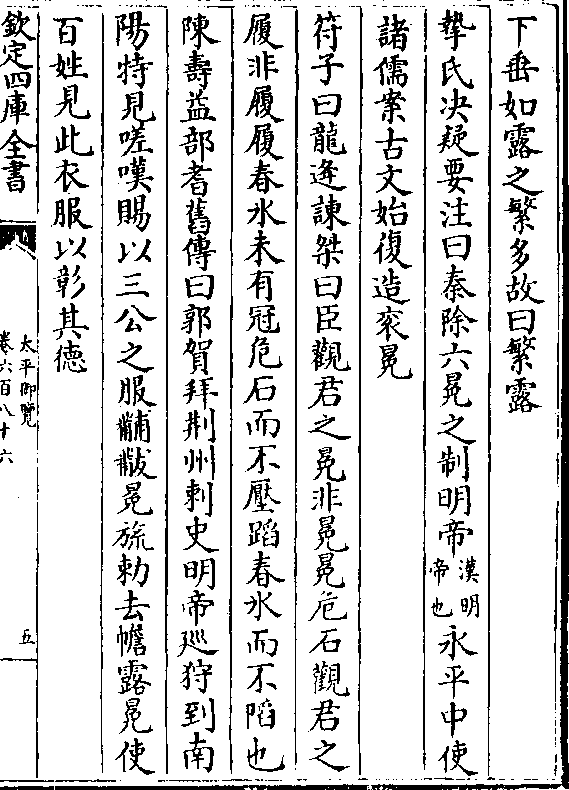 下垂如露之繁多故曰繁露
摯氏决疑要注曰秦除六冕之制明帝漢明帝也永平中使
諸儒案古文始復造衮冕
符子曰龍逄諫桀曰臣觀君之冕非冕冕危石觀君之
履非履履春氷未有冠危石而不壓蹈春氷而不陷也
陳壽益部耆舊傳曰郭賀拜荆州刺史明帝廵狩到南
陽特見嗟嘆賜以三公之服黼黻冕旒勅去幨露冕使
百姓見此衣服以彰其德
欽定四庫全書
太平御覽
卷六百八十六
五